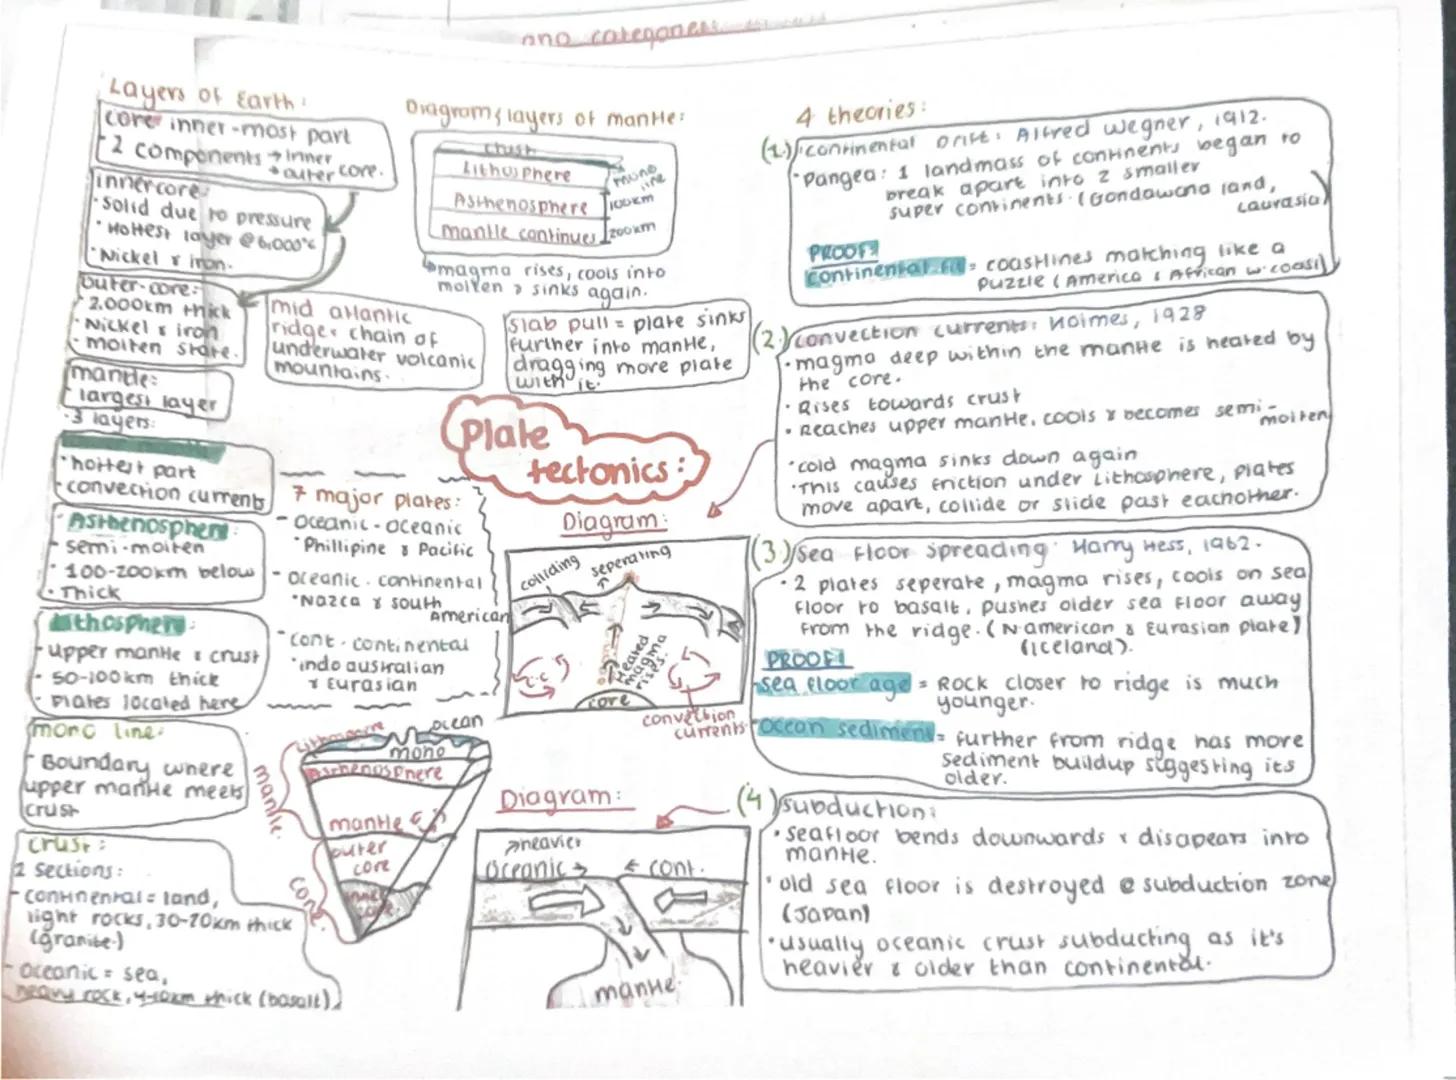 and categories
Layers of Earth:
core inner-most part
- 2 components → inner
→ outer core.
inner core:
· Solid due to pressure
· Hottest layer @ 6,000°c
· Nickel & iron.
Outer-core:
· 2,000km thick
· Nickel & iron
· molten state.
mantle:
- largest layer
· 3 layers:
· hottest part
- convection currents
Asthenosphere:
- semi-molten
· 100-200km below
· Thick
Lithosphere:
- upper mantle & crust
· 50-100km thick
- plates located here
moho line:
- Boundary where
upper mantle meets
crust
Crust:
2 sections:
- continental = land,
light rocks, 30-70km thick
(granite.)
- Oceanic = sea,
heavy rock, 4-10km thick (basalt)
Diagram, layers of mantle:
crust
Lithosphere
moho
line
Asthenosphere
100km
mantle continues
200km
magma rises, cools into
molten & sinks again.
mid atlantic
ridge: chain of
underwater volcanic
mountains.
Slab pull = plate sinks
further into mantle,
dragging more plate
with it.
Plate
tectonics:
7 major plates:
- Oceanic - Oceanic
· Phillipine & Pacific
- Oceanic - continental
· Nazca & south
American
- cont - continental
· indo australian
& Eurasian
Diagram:
colliding
seperating
c.c
heated
magma
rises.
core
convection
currents
Lithosphere
ocean
moho
Asthenosphere
mantle
mantle.
outer
core
inner
core
core.
Diagram:
→ heavier
Oceanic →
← cont.
mantle.
4 theories:
(1.) continental Drift: Alfred Wegner, 1912.
· Pangea: 1 landmass of continents began to
break apart into 2 smaller
super continents. (Gondawana land,
Laurasia)
PROOF:
continental fit = coastlines matching like a
puzzle (America & African w. coast)
(2.) convection currents: Holmes, 1928
· magma deep within the mantle is heated by
the core.
· Rises towards crust
· Reaches upper mantle, cools & becomes semi-
molten
· cold magma sinks down again
· This causes friction under Lithosphere, plates
move apart, collide or slide past eachother.
(3.) Sea Floor Spreading: Harry Hess, 1962.
· 2 plates seperate, magma rises, cools on sea
floor to basalt, pushes older sea floor away
from the ridge. (N american & Eurasian plate)
(Iceland).
PROOF:
sea floor age = Rock closer to ridge is much
younger.
Ocean sediment = further from ridge has more
Sediment buildup suggesting its
older.
(4) subduction:
· seafloor bends downwards & disapears into
mantle.
· old sea floor is destroyed @ subduction zone
(Japan)
· usually oceanic crust subducting as it's
heavier & older than continental.